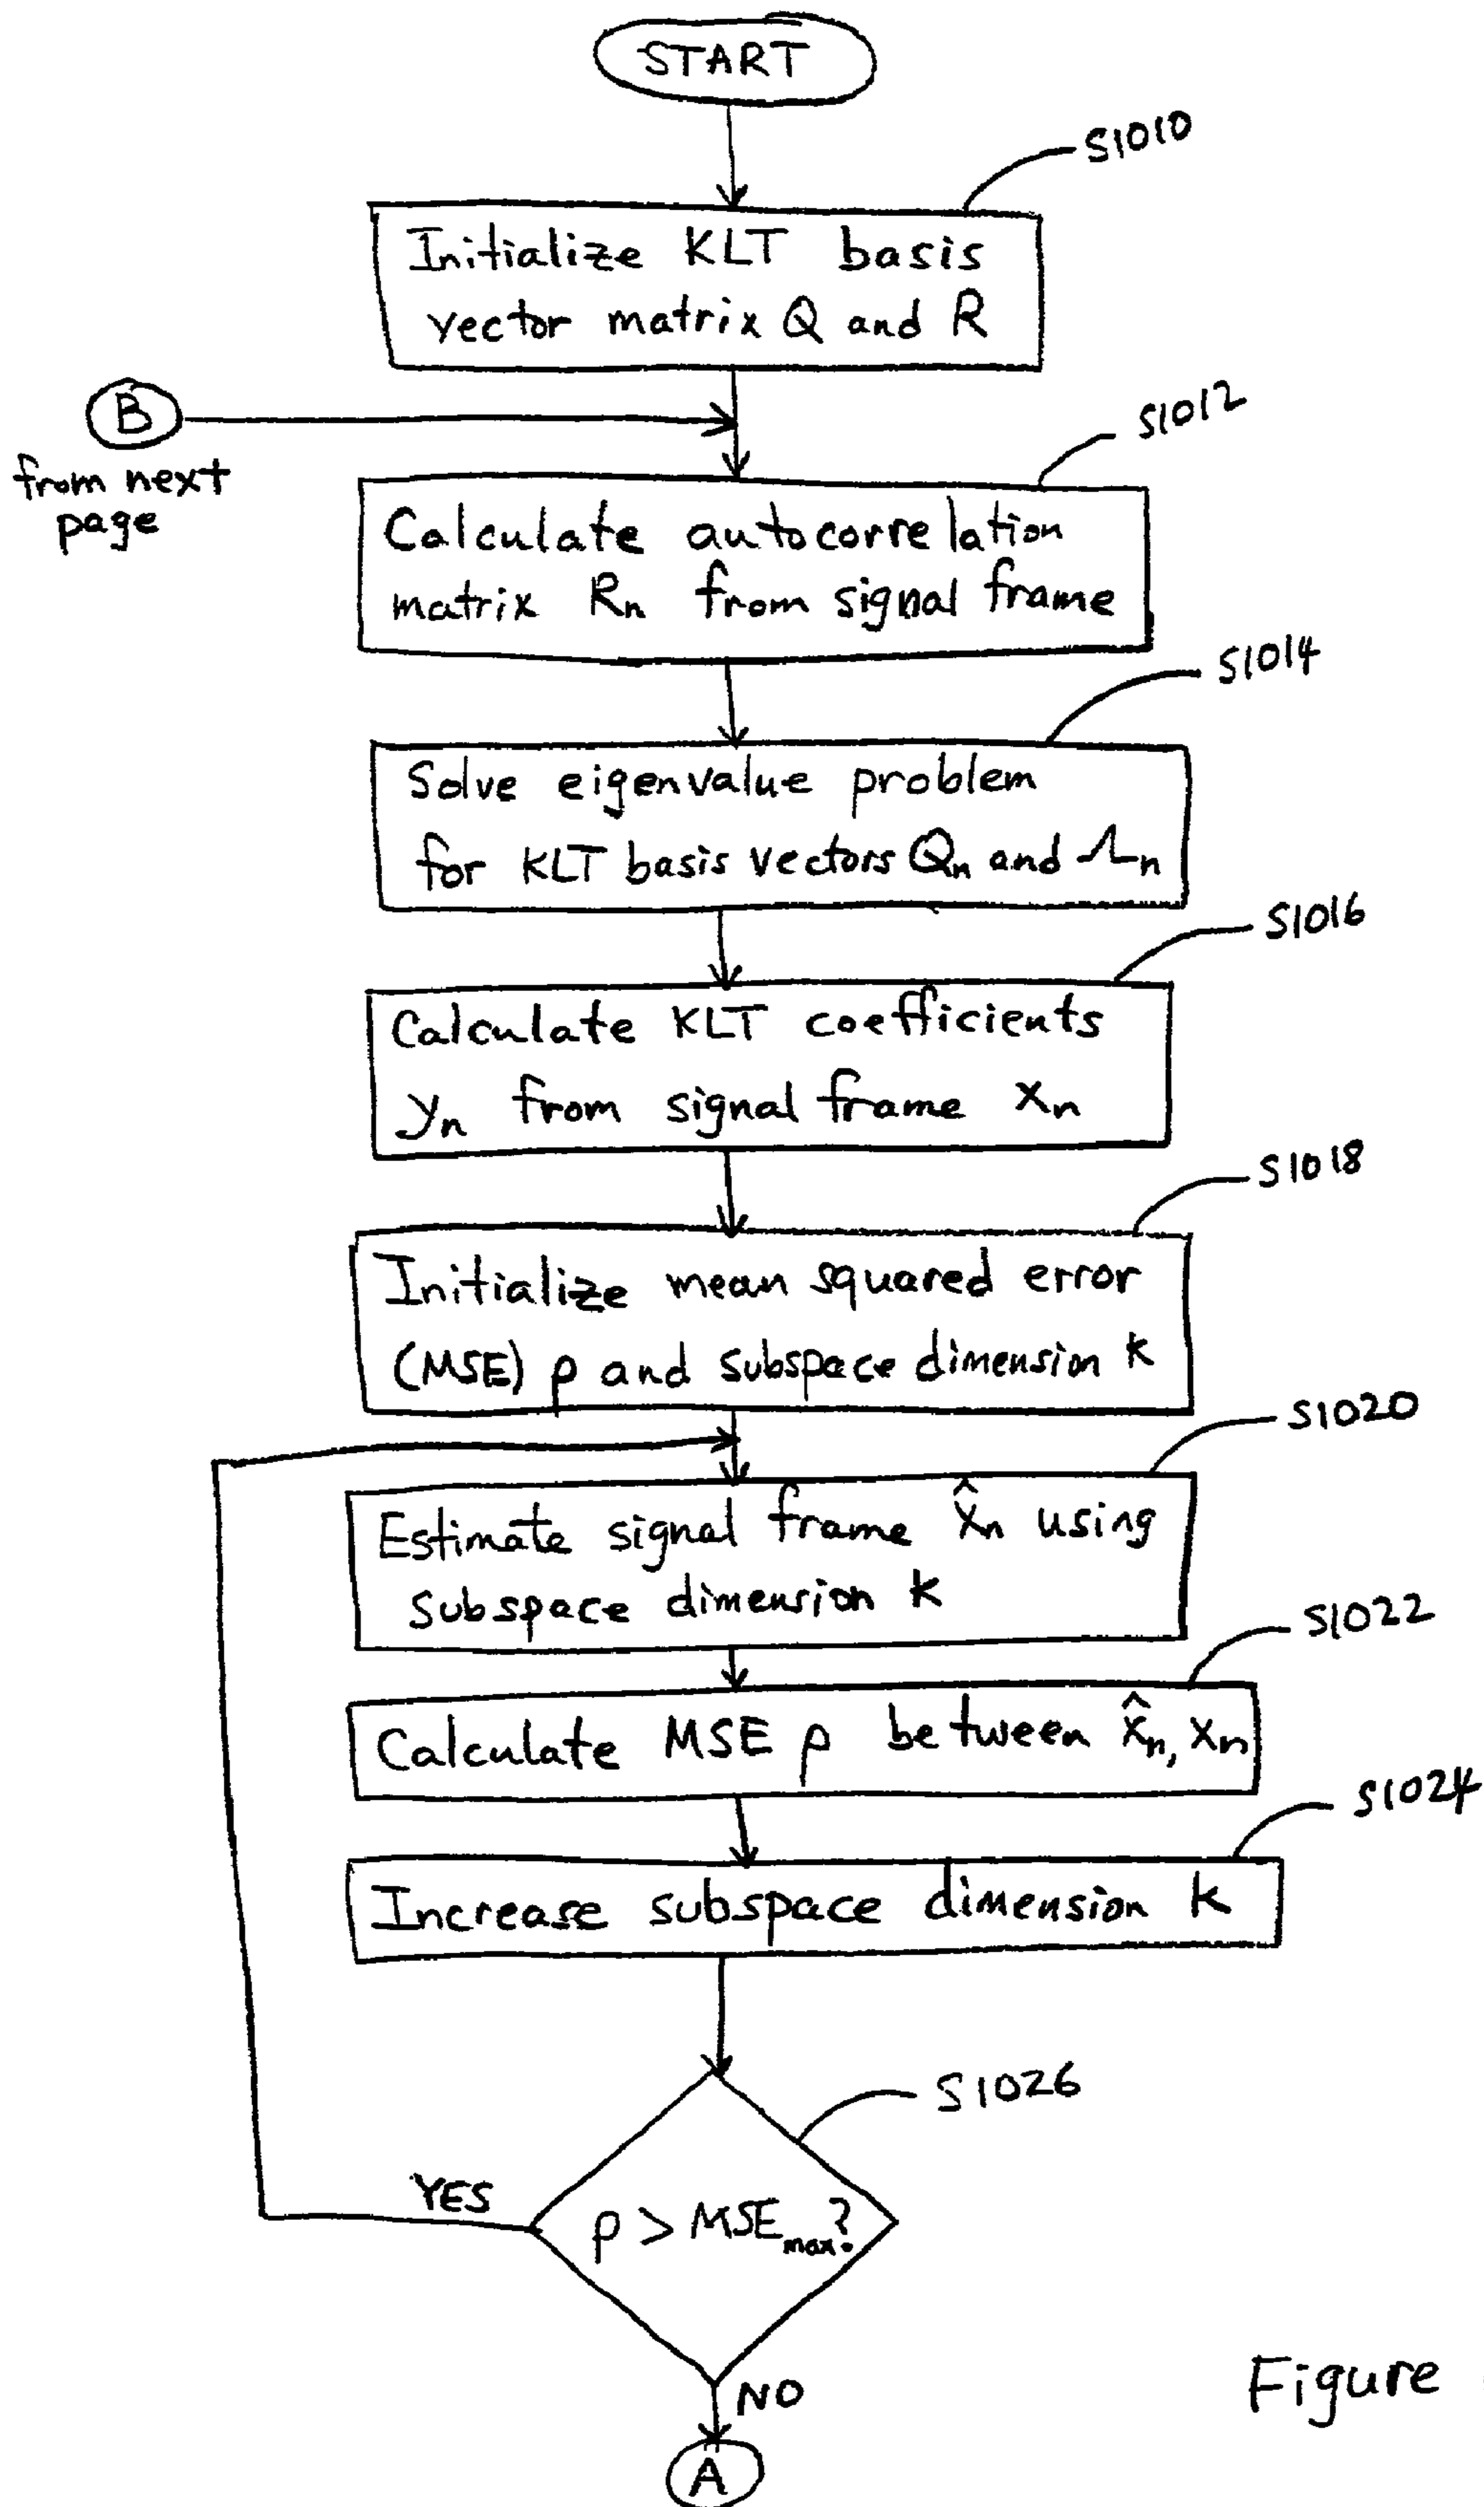 START
S1010
Initialize KLT basis
vector matrix Q and R
B
from next
page
S1012
Calculate autocorrelation
matrix Rn from signal frame
S1014
Solve eigenvalue problem
for KLT basis vectors Qn and Λn
S1016
Calculate KLT coefficients
yn from signal frame xn
S1018
Initialize mean squared error
(MSE) ρ and subspace dimension k
S1020
Estimate signal frame x̂n using
subspace dimension k
S1022
Calculate MSE ρ between x̂n, xn
S1024
Increase subspace dimension k
S1026
YES
ρ > MSEmax?
NO
Figure
A